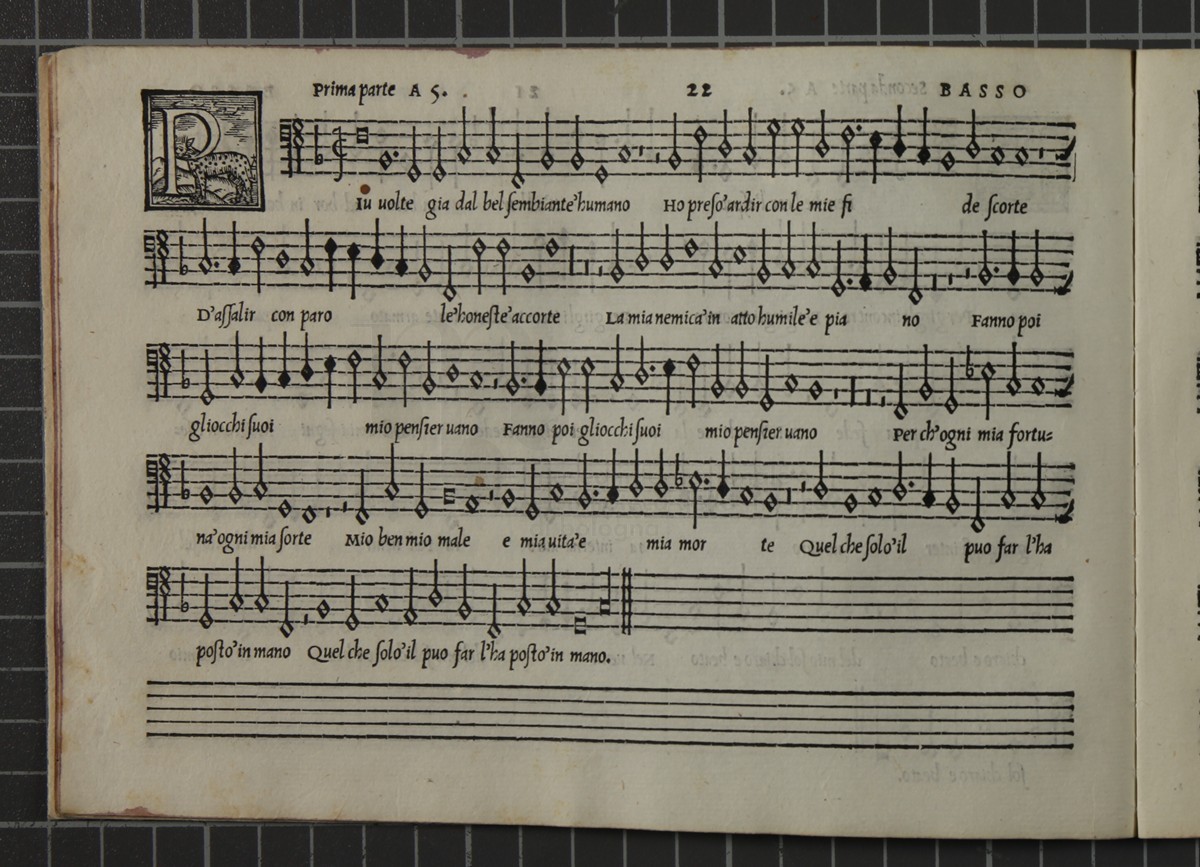 Prima parte A 5. 22 BASSO
PIu uolte gia dal bel sembiante'humano Ho preso'ardir con le mie fi de scorte
D'assalir con paro le'honeste'accorte La mia nemica'in atto humile'e pia no Fanno poi
gliocchi suoi mio pensier uano Fanno poi gliocchi suoi mio pensier uano Per ch'ogni mia fortu=
na'ogni mia sorte Mio ben mio male e mia uita'e mia mor te Quel che solo'il puo far l'ha
posto'in mano Quel che solo'il puo far l'ha posto'in mano.